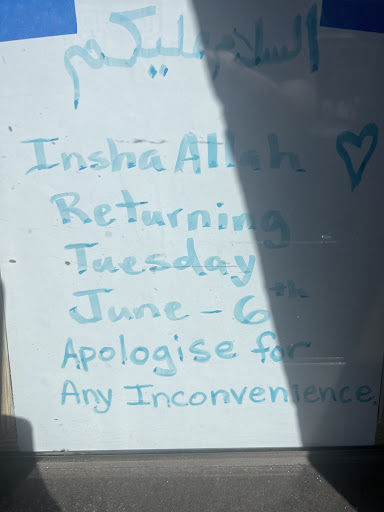 السلام عليكم
InshaAllah
Returning
Tuesday
June - 6th
Apologise for
Any Inconvenience.